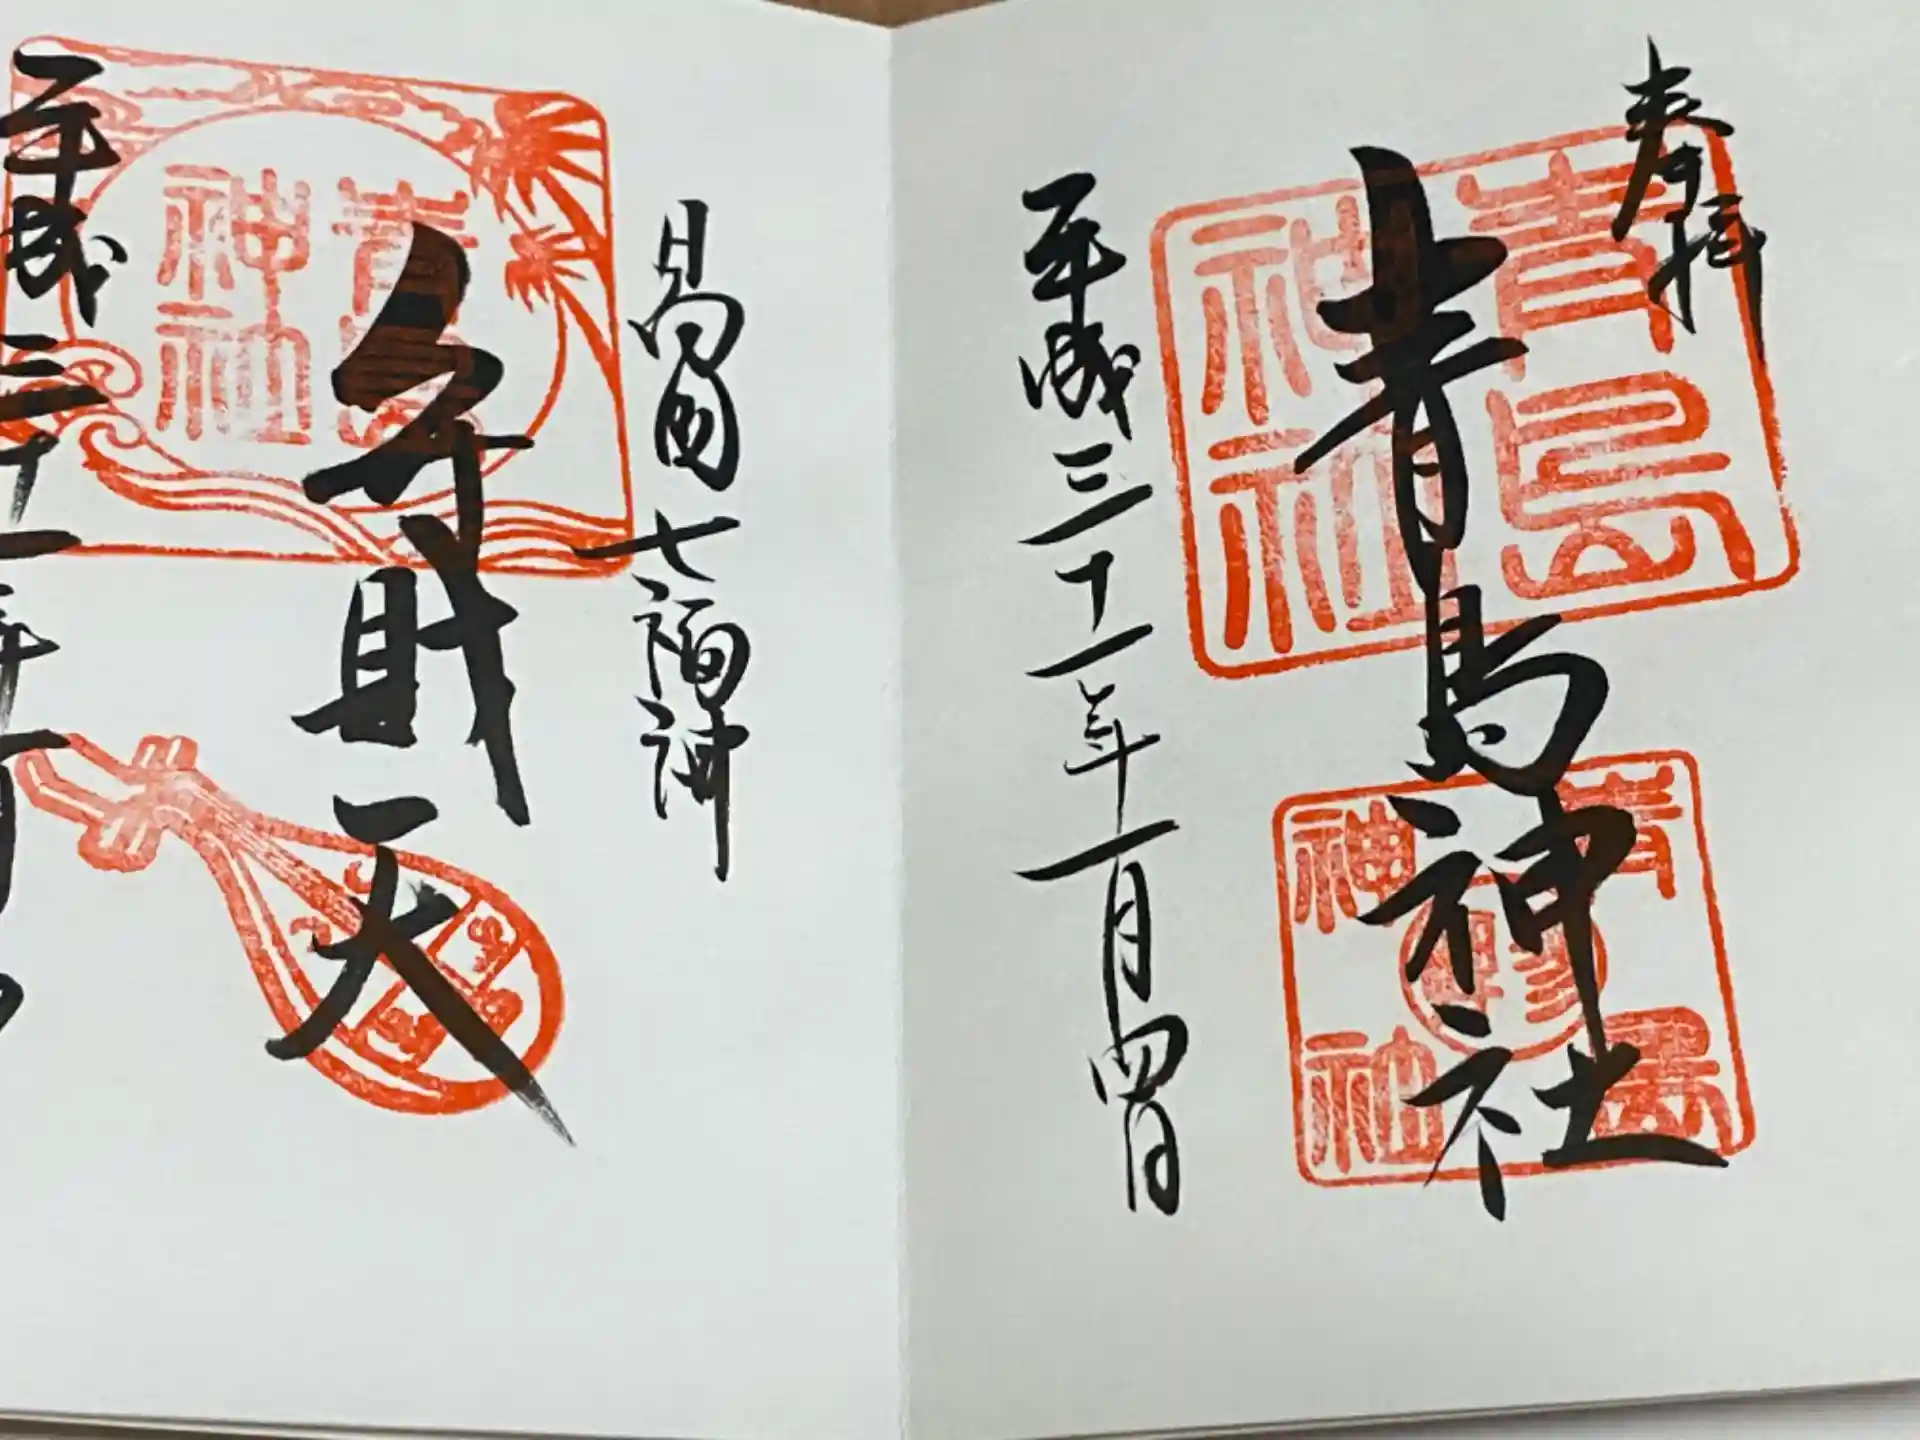 奉拝
青島神社
青島
神社
平成三十一年一月四日
日向国七福神
弁財天
青島
神社
平成三十一年一月